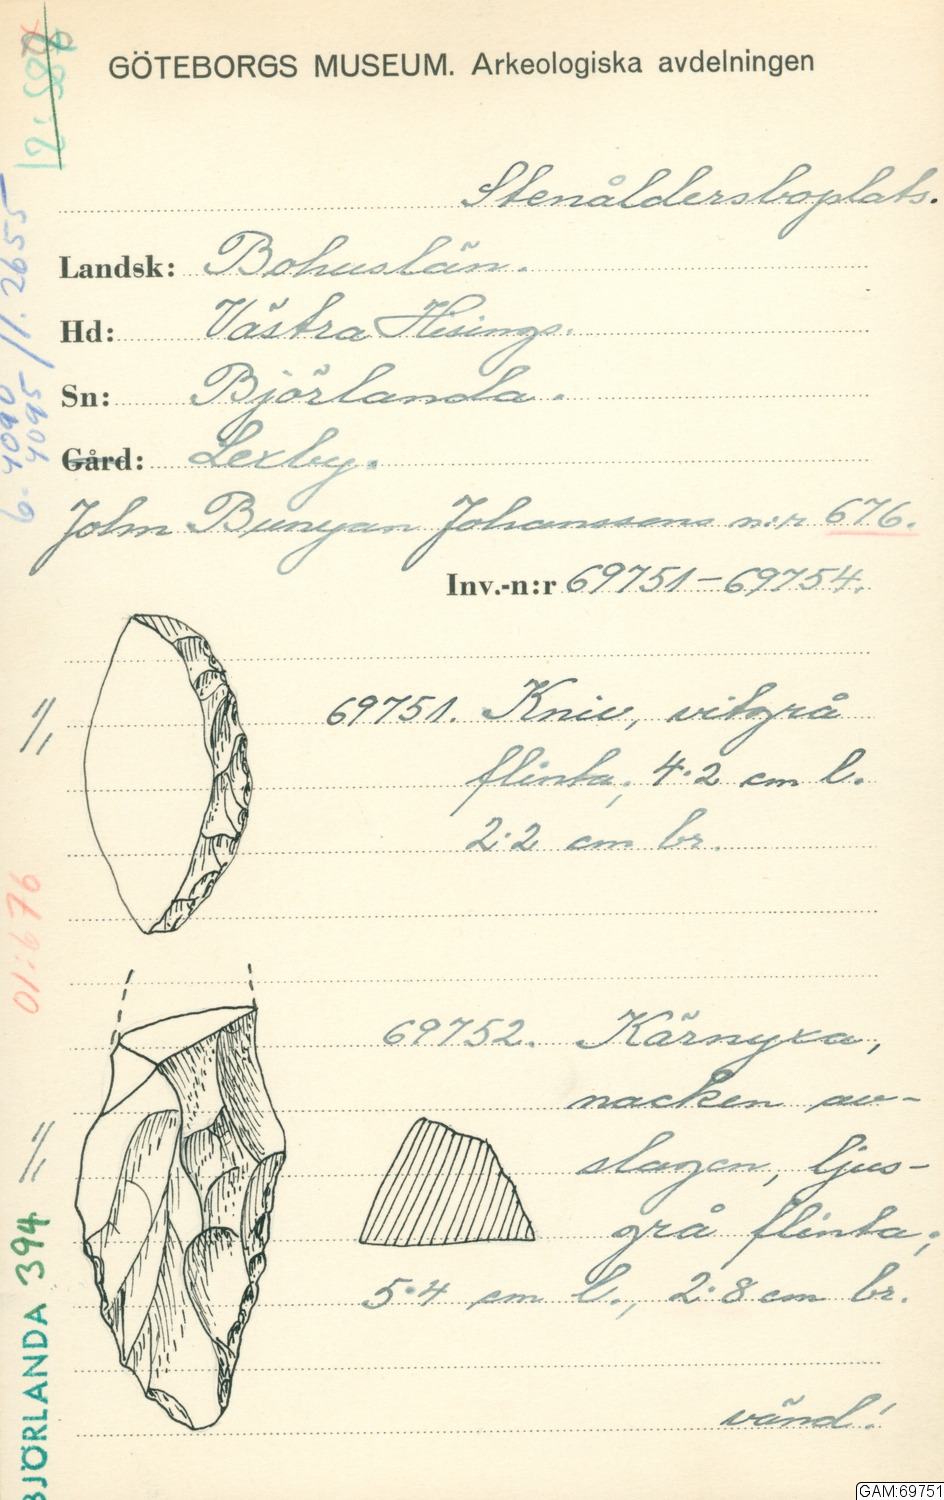 GÖTEBORGS MUSEUM. Arkeologiska avdelningen
Stenåldersboplats.
Landsk: Bohuslän.
Hd: Västra Hisings.
Sn: Björlanda.
Gård: Lexby.
John Bunyan Johanssons n:r 676.
Inv.-n:r 69751-69754.
69751. Kniv, vitgrå
flinta; 4.2 cm l.
2.2 cm br.
69752. Kärnyxa,
nacken av-
slagen, ljus-
grå flinta;
5.4 cm l., 2.8 cm br.
vänd!
6-4090 // . 2655
4095
01:676
BJÖRLANDA 394
GAM:69751